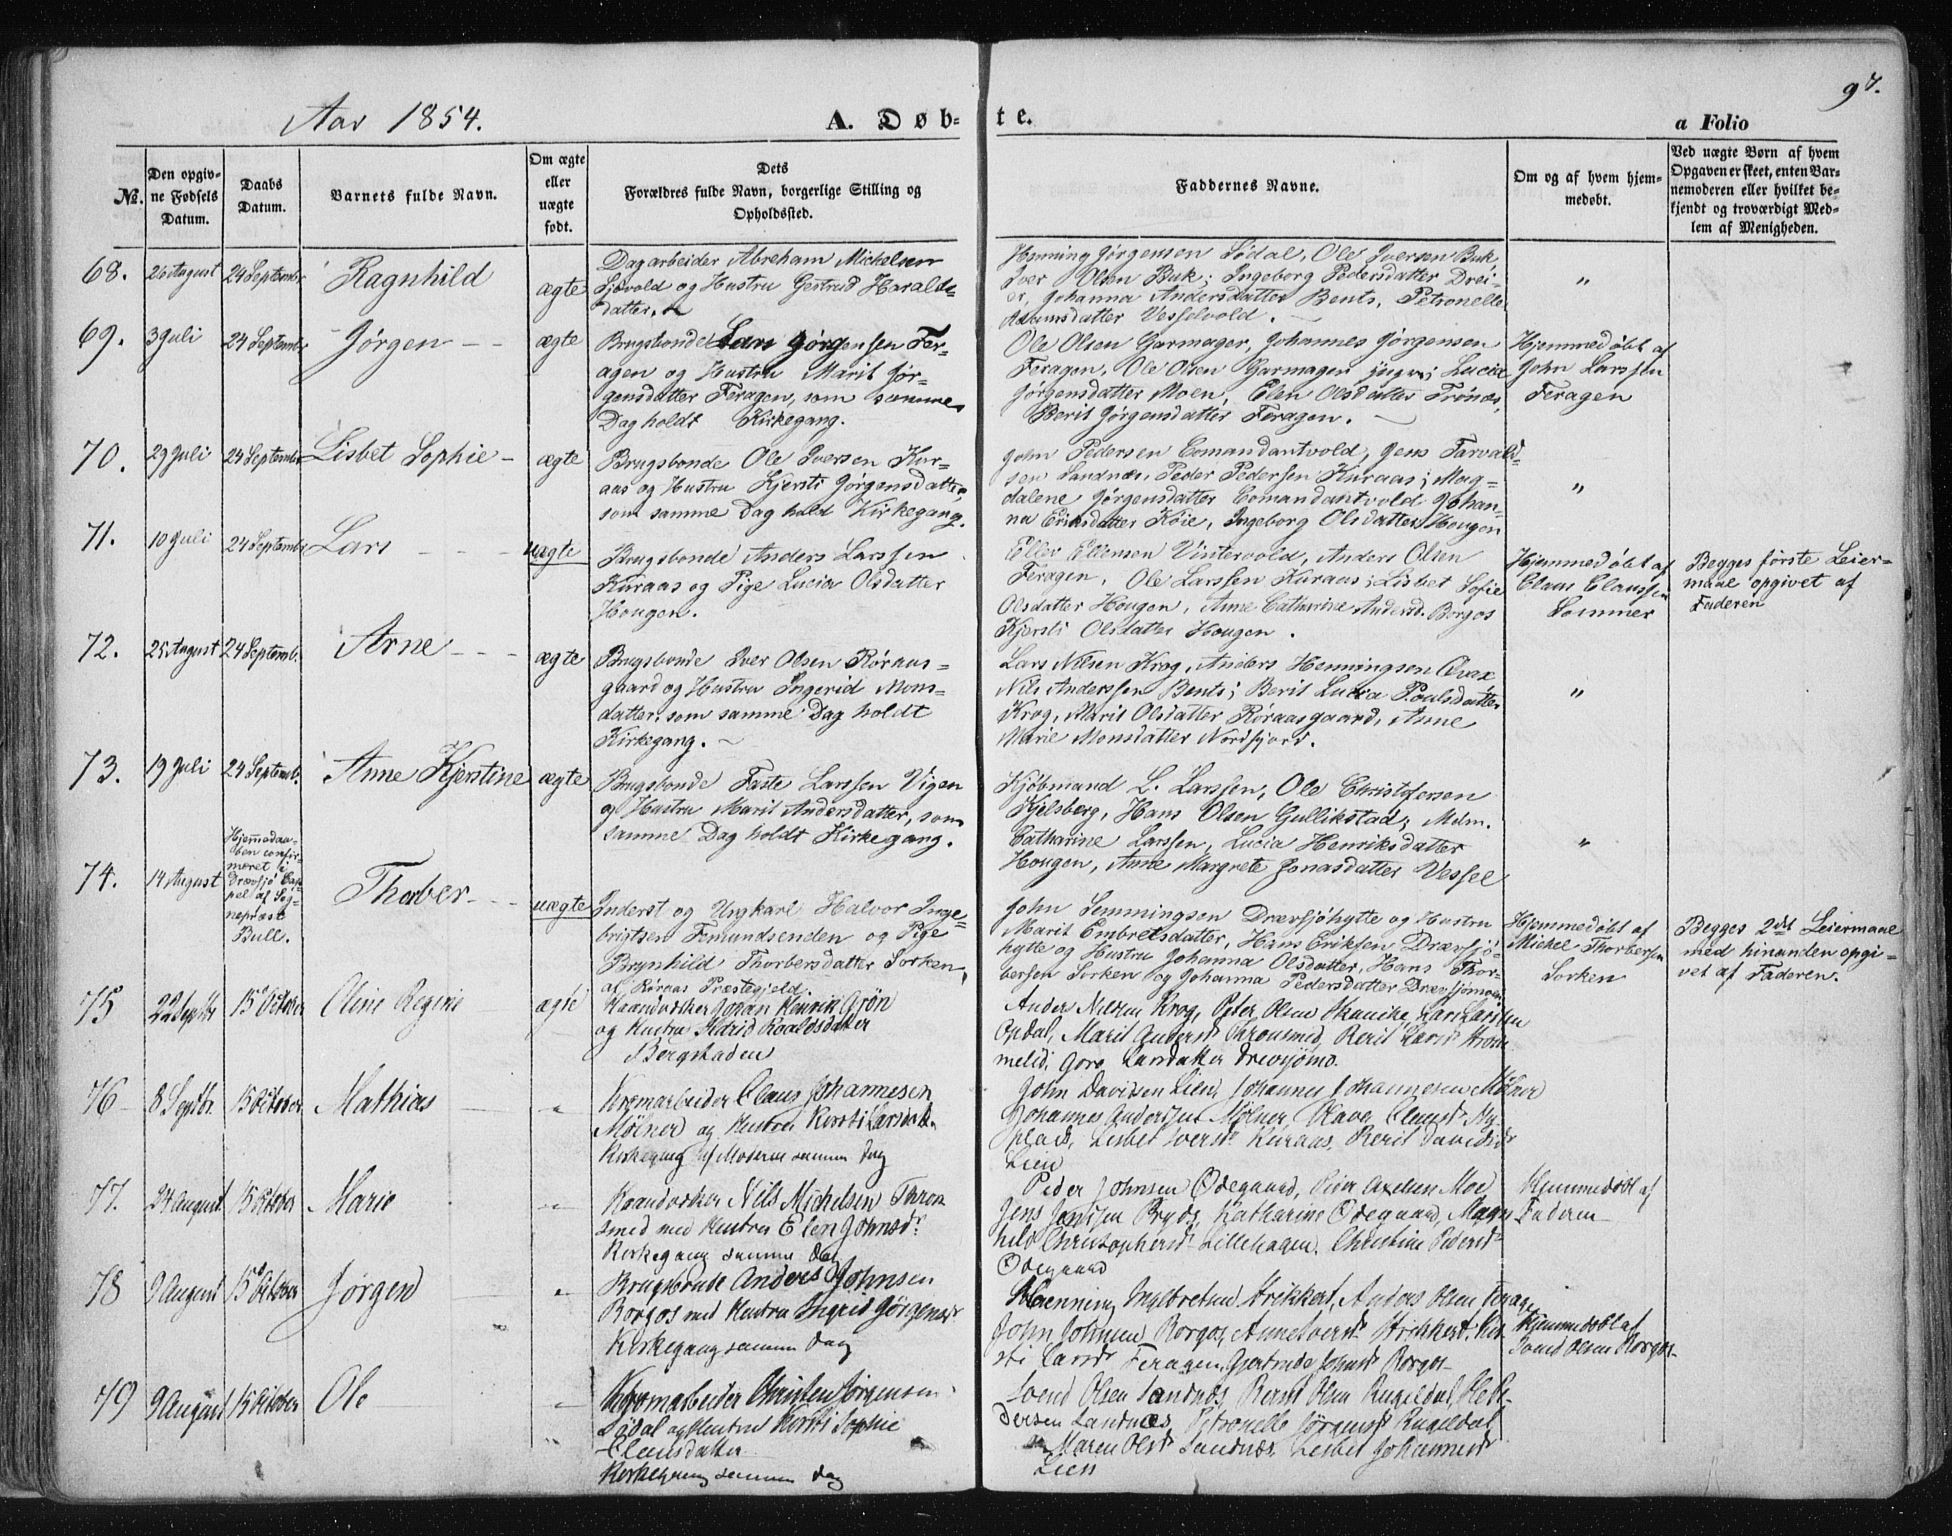 97.
Aar 1854.
A. Døb-
te.
a Folio
No.
Den opgiv-
ne Fødsels
Datum.
Daabs
Datum.
Barnets fulde Navn.
Om ægte
eller
uægte
født.
Dets
Forældres fulde Navn, borgerlige Stilling og
Opholdssted.
Faddernes Navne.
Om og af hvem hjem-
medøbt.
Ved uægte Børn af hvem
Opgaven er skeet, enten Bar-
nemoderen eller hvilket be-
kjendt og troværdigt Med-
lem af Menigheden.
68.
26 August
24 September
Ragnhild
ægte
Dagarbeider Abraham Michelsen
og Hustru Gertrud Haralds-
datter.
Henning Jørgensen Sødal, Ole Iversen Buk
Iver Olsen Buk; Ingeborg Pedersdatter Drei-
er, Johanna Andersdatter Bents, Petronelle
Vesselvold.
"
69.
3 Juli
24 Septembr
Jørgen
ægte
Brugsbonde Lars Jørgensen Fer-
agen og Hustru Marit Jør-
gensdatter Feragen, som samme
Dag holdt Kirkegang.
Ole Olsen Garmager, Johannes Jørgensen
Feragen, Ole Olsen Garmagen; Lucia
Jørgensdatter Moen, Elen Olsdatter Trønæs,
Berit Jørgensdatter Feragen.
Hjemmedøbt af
John Larssen
Feragen
70.
29 Juli
24 Septembr
Lisbet Sophie
ægte
Brugsbonde Ole Iversen Kur-
aas og Hustru Kjersti Jørgensdatter,
som samme Dag hold Kirkegang.
John Pedersen Comandantvold, Jens Tarvald-
sen Sandnæs, Peder Pedersen Kuraas; Mag-
dalene Jørgensdatter Comandantvold, Johan-
na Eriksdatter Køie, Ingeborg Olsdatter Hougen
"
71.
10 Juli
24 Septembr
Lars
uægte
Brugsbonde Anders Larssen
Kuraas og Pige Lucia Olsdatter
Hougen.
Eller Ellensen Vintervold, Anders Olsen
Feragen, Ole Larssen Kuraas; Lisbet Sofie
Olsdatter Hougen, Anne Catharine Andersd. Borgos
Kjersti Olsdatter Hougen.
Hjemmedøbt af
Claus Claussen
Sommer
Begges første Leier-
maal opgivet af
Faderen
72.
25 August
24 Septemb.
Arne
ægte
Brugsbonde Iver Olsen Røraas-
gaard og Hustru Ingerid Mons-
datter, som samme Dag holdt
Kirkegang.
Lars Nilsen Krog, Anders Henningsen
Nils Anderssen Bents; Berit Lucia Poulsdatter
Krog, Marit Olsdatter Røraasgaard, Anne
Marie Monsdatter Nordfjord.
"
73.
19 Juli
24 Septemb.
Anne Kjerstine
ægte
Brugsbonde Faste Larssen Vigen
og Hustru Marit Andersdatter, som
samme Dag holdt Kirkegang.
Kjøbmand L. Larssen, Ole Christofersen
Kjelsberg, Hans Olsen Gullikstad; Mdm.
Catharine Larssen, Lucia Henriksdatter
Hougen, Anne Margrete Jonasdatter Vessel
"
74.
14 August
Hjemmedaa-
ben confir-
meret i
Drevsjø Cap-
pel af Sog-
nepræst
Bull.
Thorber
uægte
Inderst og Ungkarl Halvor Inge-
brigtsen Femundsenden og Pige
Brynhild Thorbersdatter Sorken,
af Røraas Præstegjeld.
John Semmingsen Drævsjøhytte og Hustru
Marit Embretsdatter, Hans Eriksen Drævsjø-
hytte og Hustru Johanna Olsdatter, Hans Thor-
bersen Sorken og Johanna Pedersdatter Drævsjømoen
Hjemmedøbt af
Mickel Thorbersen
Sorken
Begges 2det Leiermaal
med hinanden opgi-
vet af Faderen.
75
22 Septbr
15 October
Oline Regine
ægte
Haandverker Johan Henrik Grön
og Hustru Roaldsdatter
Bergstaden
Ander Nilsen Krog, Peter Olsen
Opdal, Marit Andersd Thronsmed, Berit Larsd
Goro Larsdatter Drevsjömo.
76
8 Septbr.
15 October
Mathias
"
Kromarbeider Claus Johannesen
Mölner og Hustru Kersti Larsdatter
Kirkegang af Moderen samme Dag
John Davidsen Lien, Johannes Johannesen Mölner
Johannes Andersen Mölner, Clausd Ny-
plads, Lisbet Iversd Kuraas, Berit Davidsd
Lien
77.
24 August
15 October
Marie
"
Haandverker Nils Michelsen Thron
smed med Hustru Elen Johnsdr
Kirkegang samme Dag
Peder Johnsen Ödegaard, Axelsen Moe
Jens Jensen Bryds, Katharine Ödegaard, Magn
hild Christophersd Lillehagen, Christine Pedersd
Ödegaard
Hjemmedöbt af
Faderen
78
9 August
15 October
Jörgen
"
Brugsbonde Anders Johnsen
Borgos med Hustru Ingrid Jörgensdr
Kirkegang samme Dag
Henning Ingebretsen Strikkert, Anders Olsen Feragen
John Johnsen Borgos, Anne Iversd Strikkert, Ker-
sti Larsd Feragen, Gjertrude Johnsd Borgos
Hjemmedöbt af
Svend Olsen Borgos
79
9 August
15 October
Ole
"
Kromarbeider Christen Jörgensen
Södal og Hustru Kersti Sophie
Clausdatter
Kirkegang samme Dag
Svend Olsen Sandnæs, Bernt Olsen Rugeldal, Ole Pe-
dersen Sandnæs, Petronelle Jörgensd Rugeldal
Maren Olsd Sandnæs, Lisbet Johannesd
Lien